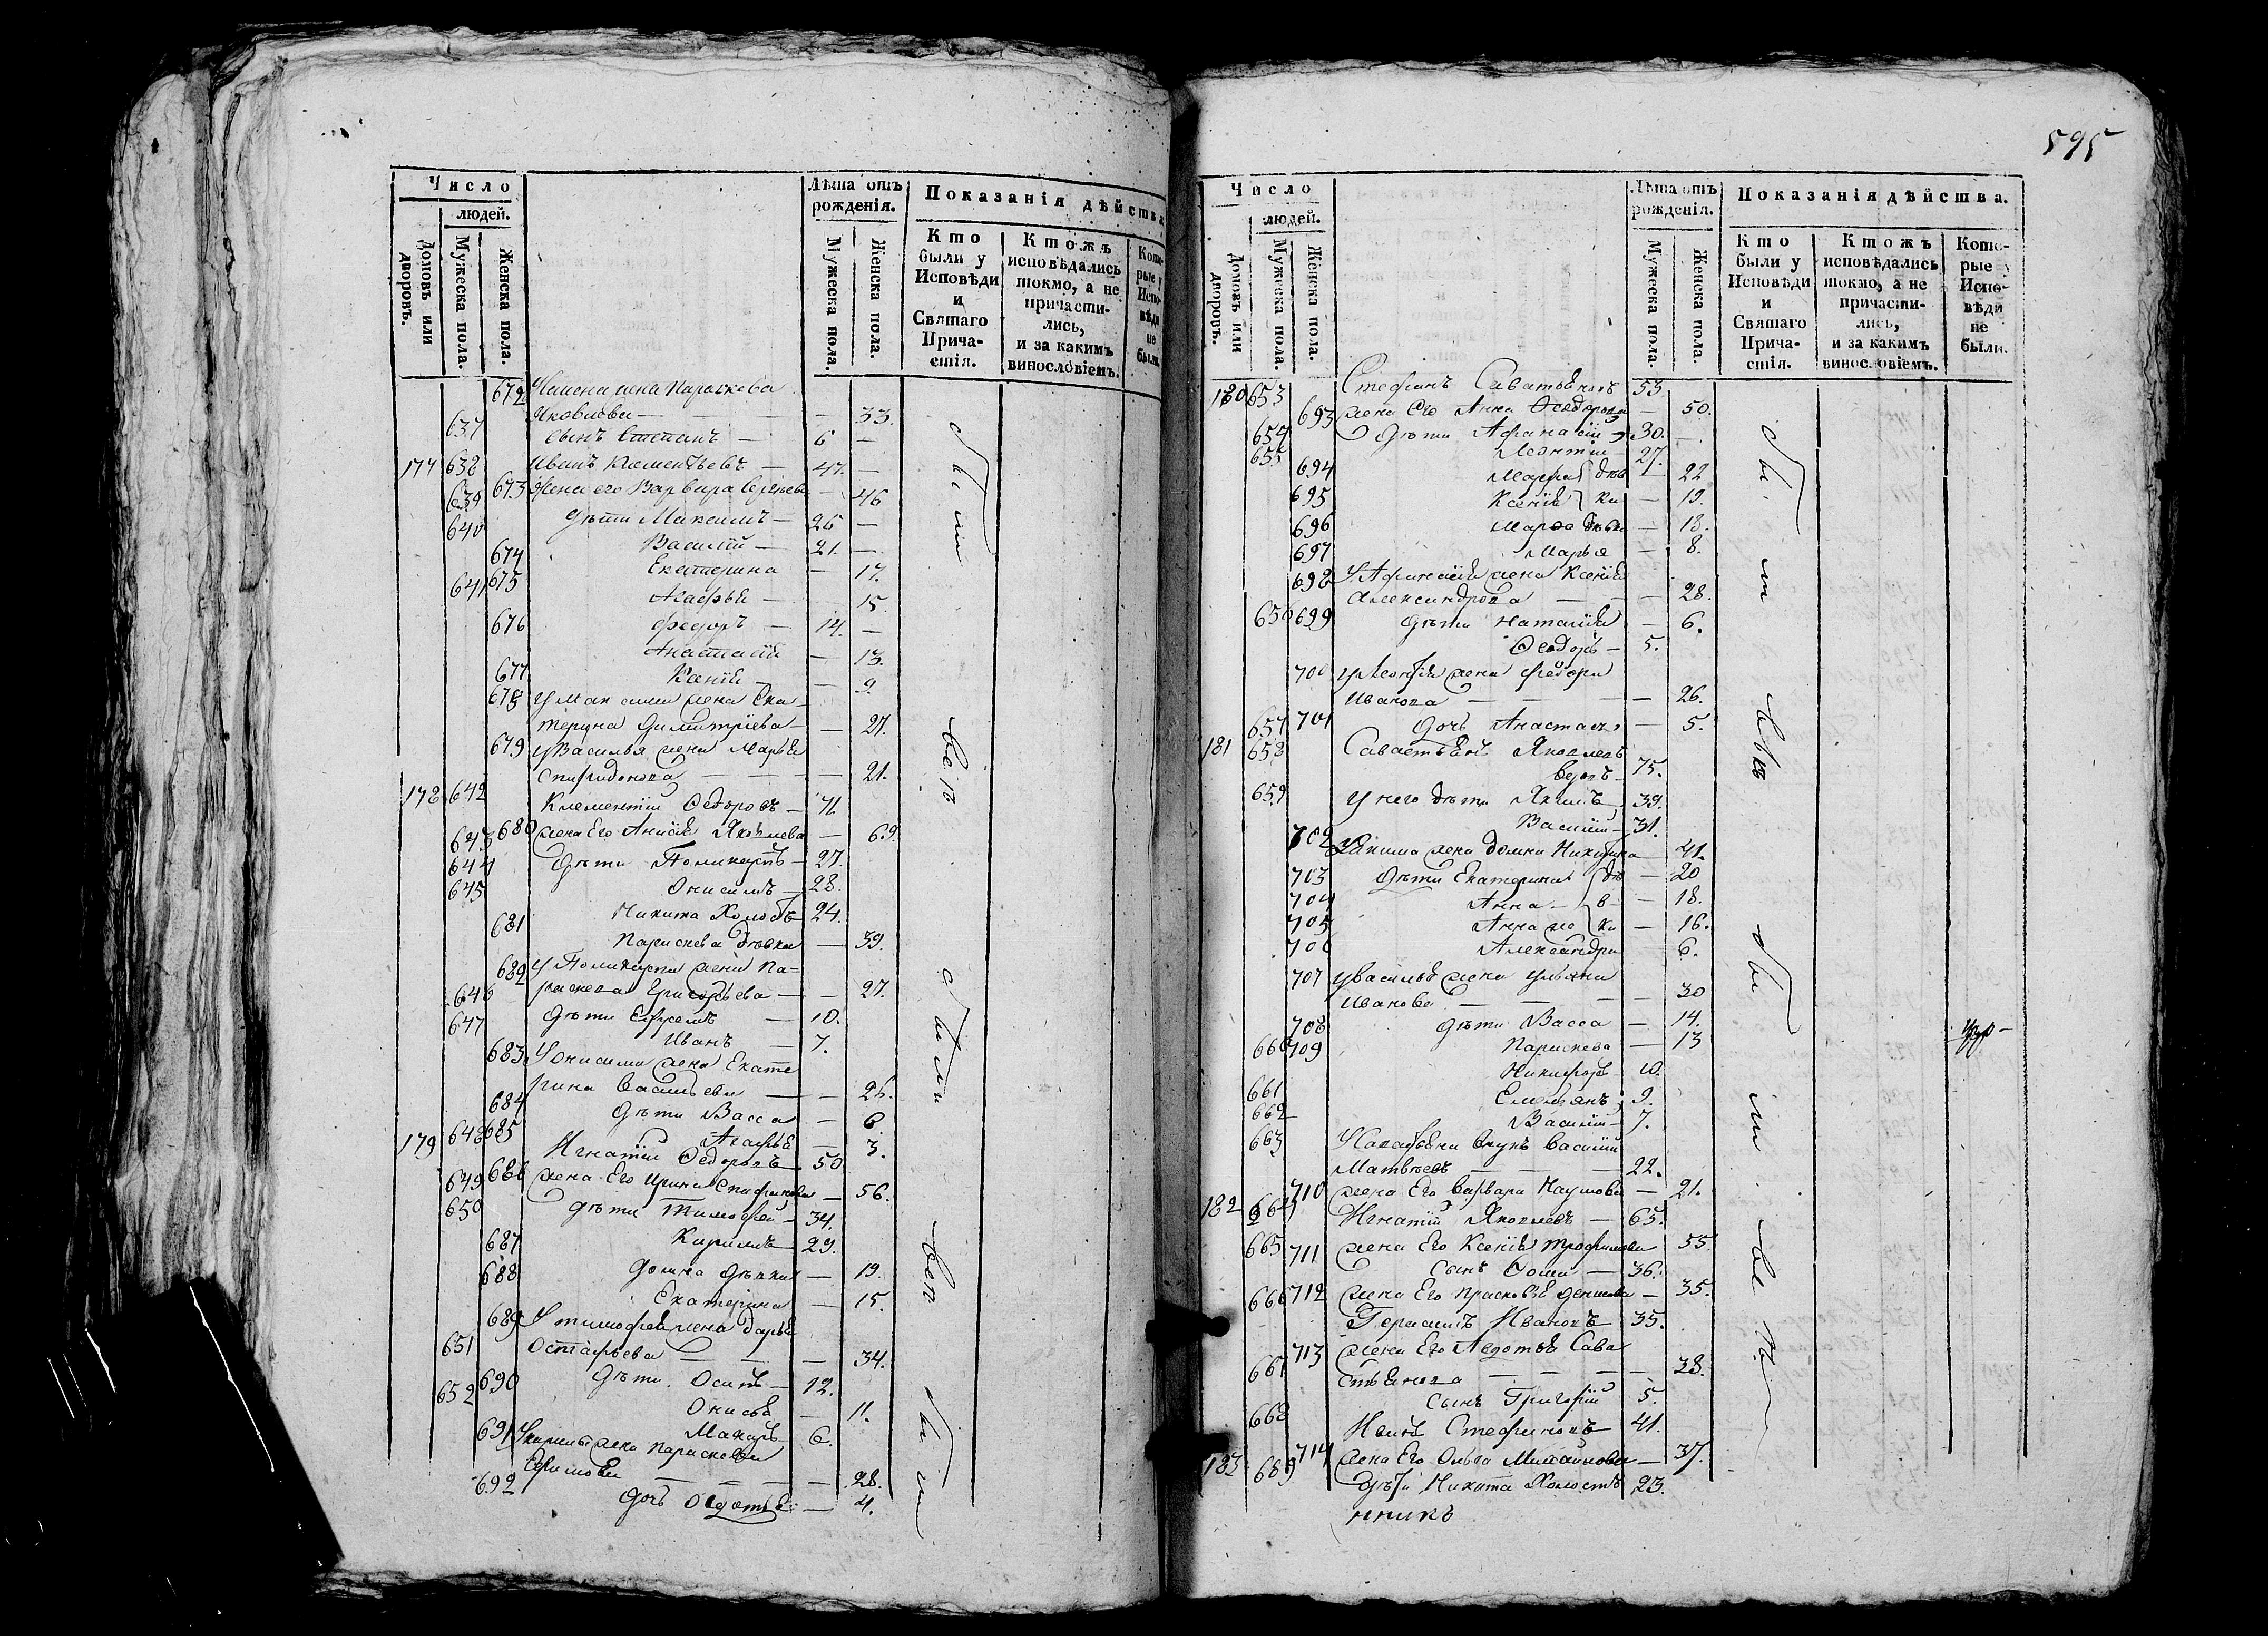 Число
людей.
Домовъ или дворовъ.
Мужеска пола.
Женска пола.
Лѣта отъ рожденія.
Мужеска пола.
Женска пола.
Показанія дѣйства
Кто были у Исповѣди и Святаго Причастія.
Ктожъ исповѣдались токмо, а не причастились, и за какимъ винословіемъ.
Которые у Исповѣди не были.
672 жена Параскева
Яковлева — 33.
637 сынъ Степанъ — 6 —
177 638 Иванъ Клементьевъ — 47. —
639 673 Жена его Варвара — 46
640 дѣти Максимъ — 26 —
Василій — 21. —
674 Екатерина — 17.
641 675 Агафья — 15.
676 Федоръ — 14. —
Анастасія — 13.
677 Ксенія — 9.
678 у Максима жена Ека-
терина Димитріева — 27.
679 у Василья жена Марья
Спиридонова — 21.
178 642 Клементій Ѳедоровъ — 71.
643 680 жена Его Анисія Яковлева — 69.
644 дѣти Поликарпъ — 27.
645 Онисимъ — 28.
Никита Холостъ 24.
681 Параскева дѣвка — 39.
682 у Поликарпа жена Па-
646 раскева Григорьева — 27.
647 дѣти Ефремъ — 10.
Иванъ — 7.
683 У Онисима жена Екате
рина Васильева — 26.
684 дѣти Васса — 6
648 685 Агафья — 3.
179 Игнатій Ѳедоровъ 50
649 686 жена Его Ирина — 56.
650 дѣти Тимофей — 34.
Кирилъ — 29.
687 Домна дѣвка — 19.
688 Екатерина — 15.
689 У тимофея жена Дарья
651 Остафьева — 34.
690 дѣти Осипъ — 12.
652 Онисья — 11.
Макаръ 6.
691 У кирилы жена Параскева
Ефимова — 28.
692 дочь Ѳедотья — 4.
были
были
595
Число
людей.
Домовъ или дворовъ.
Мужеска пола.
Женска пола.
Лѣта отъ рожденія.
Мужеска пола.
Женска пола.
Показанія дѣйства.
Кто были у Исповѣди и Святаго Причастія.
Ктожъ исповѣдались токмо, а не причастились, и за какимъ винословіемъ.
Которые у Исповѣди не были.
180 653 Стефанъ 53.
693 жена Его Анна Ѳедорова — 50.
654 дѣти Афанасій 30. —
655 Леонтій — 27.
694 Марфа дѣв — 22
695 Ксенія ки — 19.
696 Марѳа дѣвка — 18.
697 Марья — 8.
698 У Афанасія жена Ксенія
Александрова — 28.
656 699 дѣти Наталія — 6.
Ѳедоръ — 5.
700 у Леонтія жена Федора
Иванова — 26.
657 701 дочь Анастасія — 5.
181 658 Савастьянъ Яковлевъ
вдовъ — 75.
659 У него дѣти Якимъ 39.
Василій — 31.
702 У Якима жена Домна Никитина 41.
703 дѣти Екатерина дѣ — 20
704 Анна — в — 18.
705 Анна же ки — 16.
706 Александра 6.
707 у василья жена Ульяна
Иванова — 30
708 дѣти Васса — 14.
660 709 Параскева — 13
Никифоръ 10.
661 Емельянъ 9.
662 Василій — 7.
663 внукъ Василій
Матвѣевъ — 22.
710 жена Его Варвара Наумова — 21.
182 664 Игнатій Яковлевъ — 65.
665 711 жена Его Ксенія Трофимова 55.
Сынъ Ѳома — 36.
666 712 жена Его Прасковья Денисова — 35.
Герасимъ Ивановъ 35.
713 жена Его Авдотья Сава
667 стьянова — 38.
сынъ Григорій 5.
668 Стефановъ 41.
183 689 714 жена Его Ольга Михайлова — 37.
дѣти Никита Холостъ 23.
были